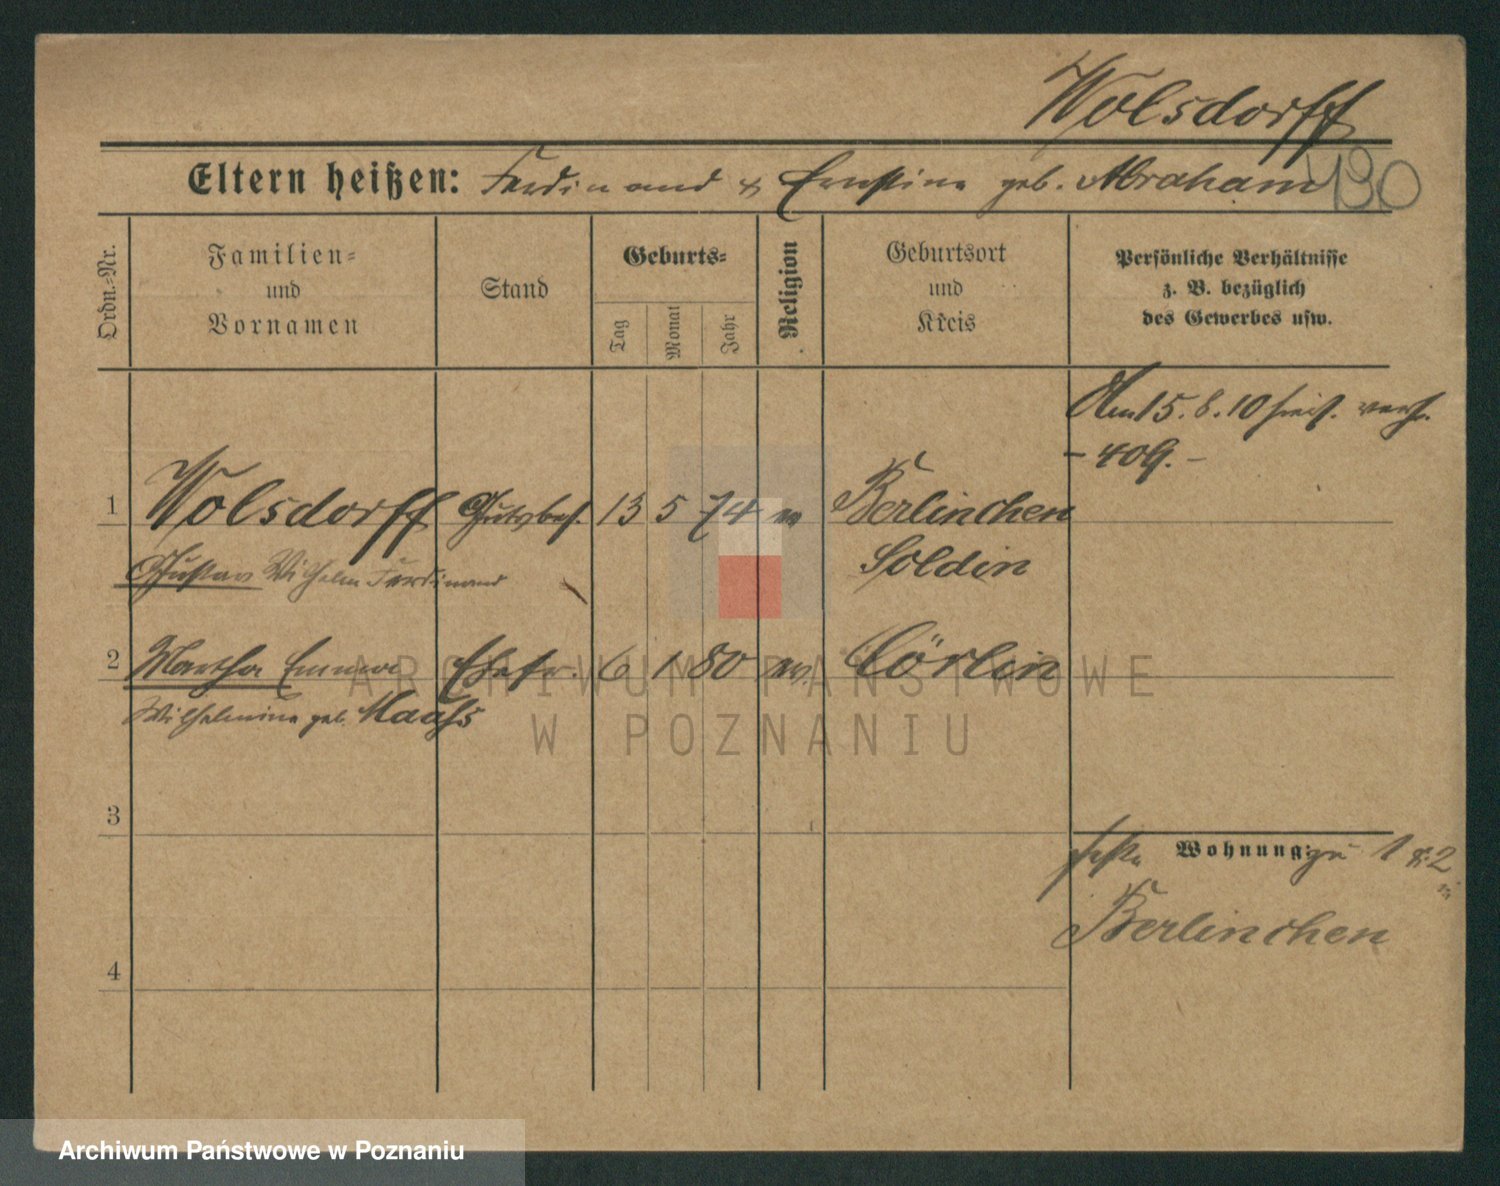 Wolsdorff
Eltern heißen: Ferdinand & Ernstine geb. Abraham
430
Ordn.-Nr.
Familien-
und
Vornamen
Stand
Geburts-
Tag
Monat
Jahr
Religion
Geburtsort
und
Kreis
Persönliche Verhältnisse
z. B. bezüglich
des Gewerbes usw.
Am 15. 8. 10
- 409. -
1 Wolsdorff Gutsbes. 13 5 74 Berlinchen
Gustav Wilhelm Ferdinand Soldin
2 Martha Emma Ehefr. 6 1 80 Cörlin
Wilhelmine geb. Maass
3
Wohnung: zu 1 & 2
Berlinchen
4
ARCHIWUM PAŃSTWOWE
W POZNANIU
Archiwum Państwowe w Poznaniu